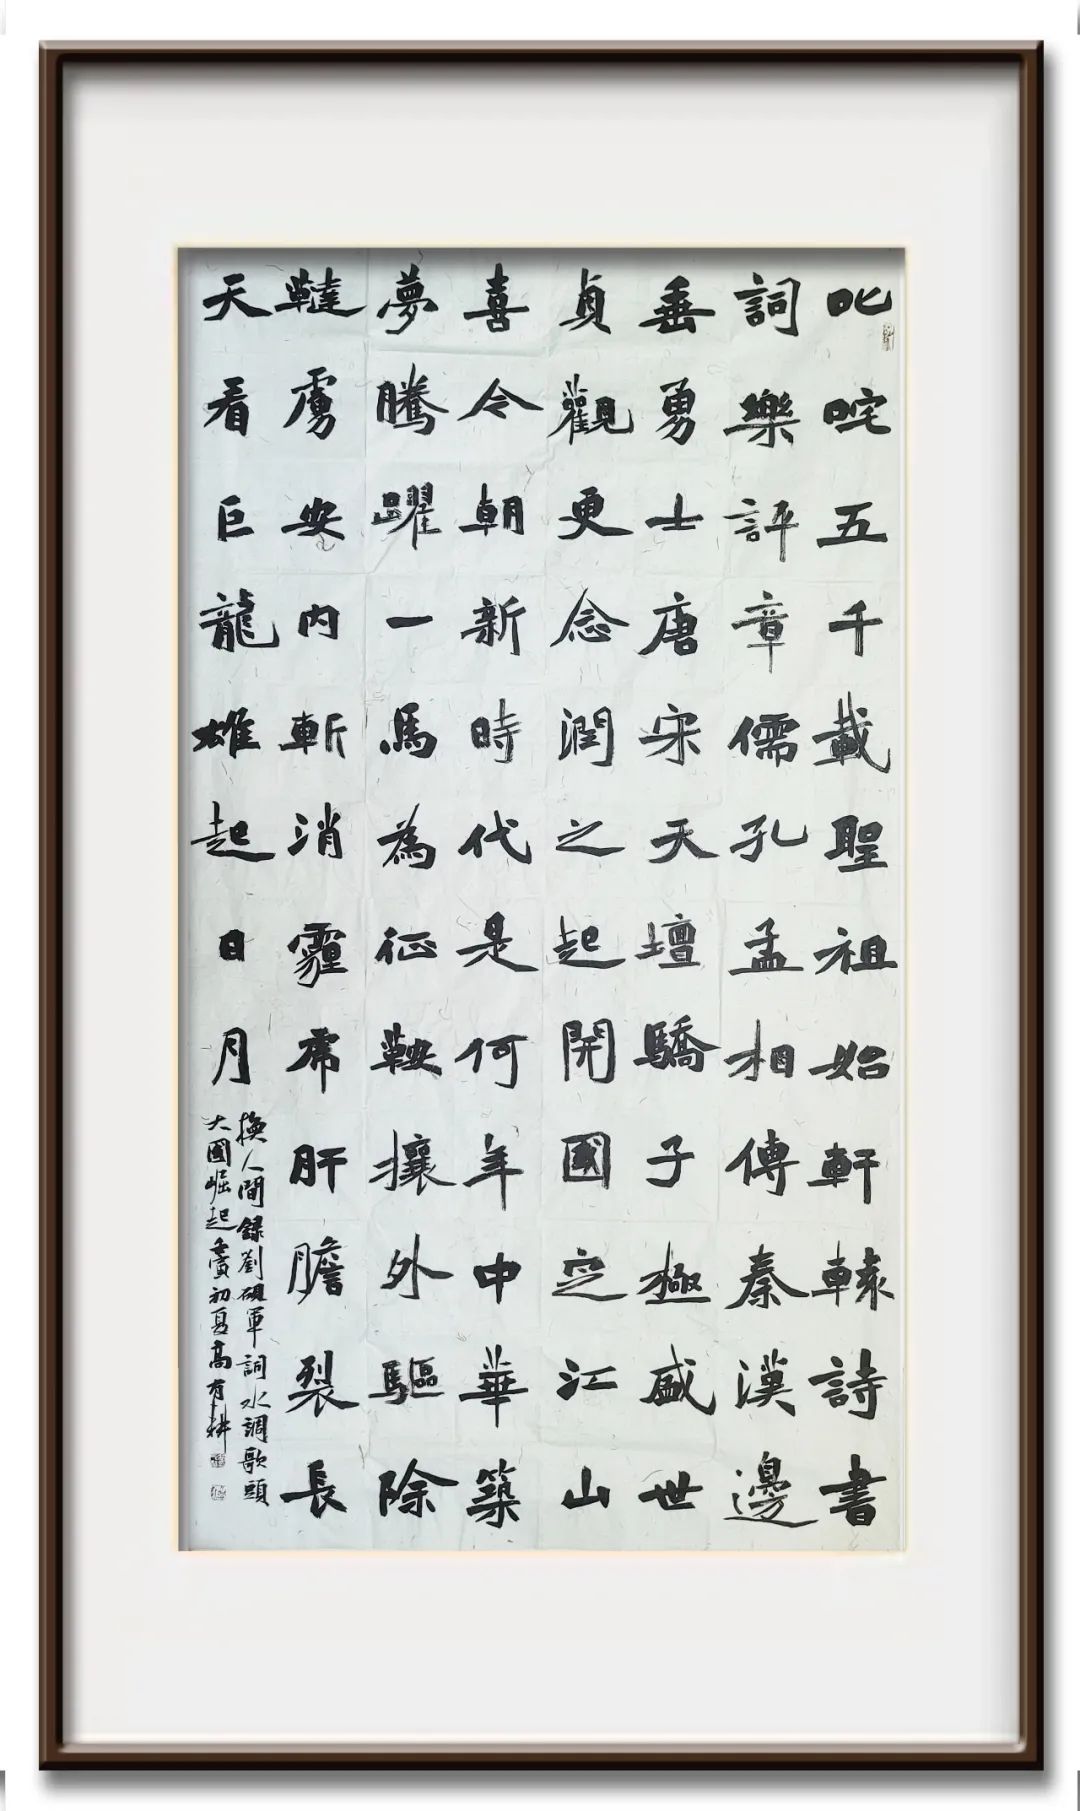 叱咤五千載聖祖始軒轅詩書
詞樂評章儒孔孟相傳秦漢邊
垂勇士唐宋天壇驕子極盛世
貞觀更念潤之起開國定江山
喜今朝新時代是何年中華築
夢騰躍一馬為征鞍攘外驅除
韃虜安內斬消霾虎肝膽裂長
天看巨龍雄起日月
換人間錄劉硯軍詞水調歌頭
大國崛起壬寅初夏高有耕